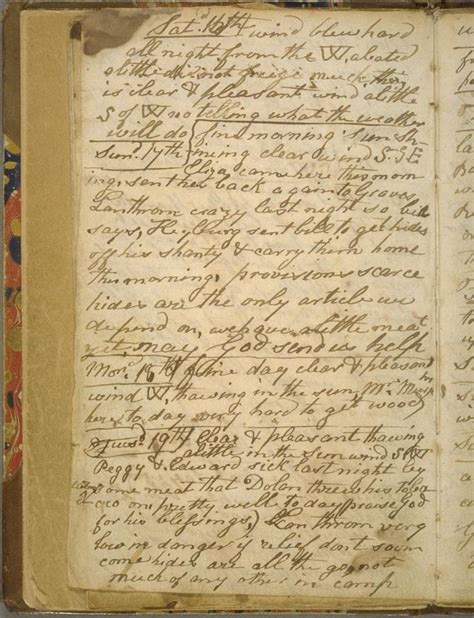 Satd. 16th wind blew hard
all night from the W, abated
a little did not freeze much there
is clear & pleasant wind a little
S of W no telling what the weather
will do fine morning sun sh-
Sund. 17th ineing clear wind S.S.E
Eliza came here this morn
ing, sent her back again to Graves
Lanthrom crazy last night so bill
says, Keyburg sent bill to get hides
off his shanty & carry them home
this morning, provisions scarce
hides are the only article we
depend on, we have a little meat
yet may God send us help
Mond. 18th fine day clear & pleasant
wind W, thawing in the sun Mrs Murphy
here to day very hard to get wood
Tuesd. 19th Clear & pleasant thawing
a little in the sun wind S.W
Peggy & Edward sick last night by
eating some meat that Dolan threw his tobac
cro on, pretty well to day (praise God
for his blessings,) Lanthrom very
low in danger if relief dont soon
come hides are all the go, not
much of any other in camp